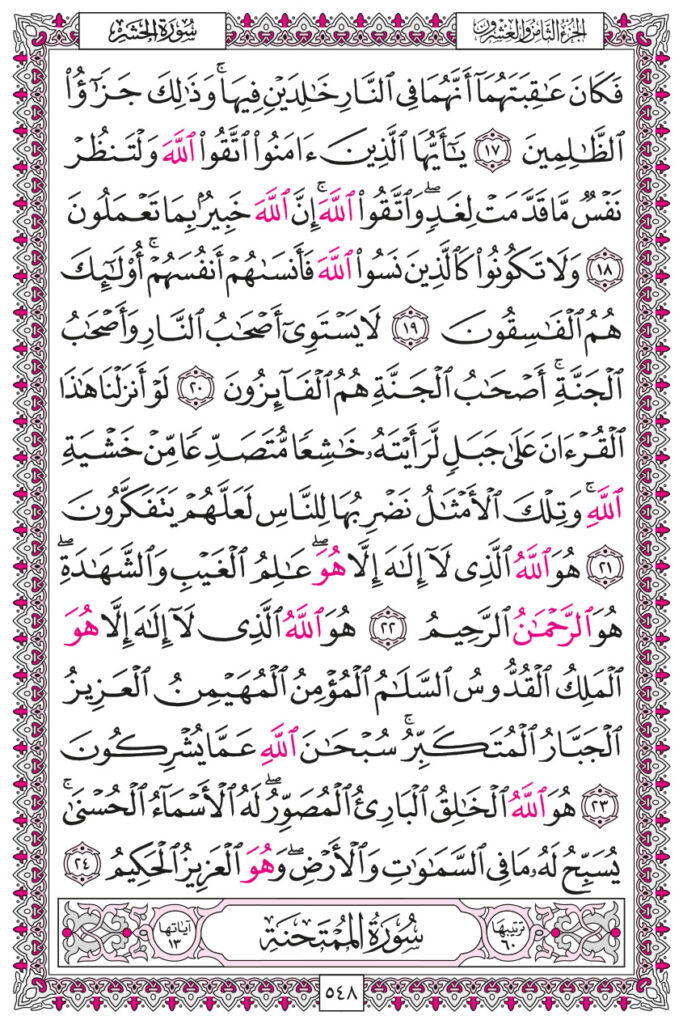 الجزء الثامن والعشرون
سورة الحشر
فَكَانَ عَٰقِبَتَهُمَآ أَنَّهُمَا فِى ٱلنَّارِ خَٰلِدَيْنِ فِيهَا ۚ وَذَٰلِكَ جَزَٰٓؤُا۟
ٱلظَّٰلِمِينَ ١٧ يَٰٓأَيُّهَا ٱلَّذِينَ ءَامَنُوا۟ ٱتَّقُوا۟ ٱللَّهَ وَلْتَنظُرْ
نَفْسٌ مَّا قَدَّمَتْ لِغَدٍ ۖ وَٱتَّقُوا۟ ٱللَّهَ ۚ إِنَّ ٱللَّهَ خَبِيرٌۢ بِمَا تَعْمَلُونَ
١٨ وَلَا تَكُونُوا۟ كَٱلَّذِينَ نَسُوا۟ ٱللَّهَ فَأَنسَىٰهُمْ أَنفُسَهُمْ ۚ أُو۟لَٰٓئِكَ
هُمُ ٱلْفَٰسِقُونَ ١٩ لَا يَسْتَوِىٓ أَصْحَٰبُ ٱلنَّارِ وَأَصْحَٰبُ
ٱلْجَنَّةِ ۚ أَصْحَٰبُ ٱلْجَنَّةِ هُمُ ٱلْفَآئِزُونَ ٢٠ لَوْ أَنزَلْنَا هَٰذَا
ٱلْقُرْءَانَ عَلَىٰ جَبَلٍ لَّرَأَيْتَهُۥ خَٰشِعًا مُّتَصَدِّعًا مِّنْ خَشْيَةِ
ٱللَّهِ ۚ وَتِلْكَ ٱلْأَمْثَٰلُ نَضْرِبُهَا لِلنَّاسِ لَعَلَّهُمْ يَتَفَكَّرُونَ
٢١ هُوَ ٱللَّهُ ٱلَّذِى لَآ إِلَٰهَ إِلَّا هُوَ ۖ عَٰلِمُ ٱلْغَيْبِ وَٱلشَّهَٰدَةِ ۖ
هُوَ ٱلرَّحْمَٰنُ ٱلرَّحِيمُ ٢٢ هُوَ ٱللَّهُ ٱلَّذِى لَآ إِلَٰهَ إِلَّا هُوَ
ٱلْمَلِكُ ٱلْقُدُّوسُ ٱلسَّلَٰمُ ٱلْمُؤْمِنُ ٱلْمُهَيْمِنُ ٱلْعَزِيزُ
ٱلْجَبَّارُ ٱلْمُتَكَبِّرُ ۚ سُبْحَٰنَ ٱللَّهِ عَمَّا يُشْرِكُونَ
٢٣ هُوَ ٱللَّهُ ٱلْخَٰلِقُ ٱلْبَارِئُ ٱلْمُصَوِّرُ ۖ لَهُ ٱلْأَسْمَآءُ ٱلْحُسْنَىٰ ۚ
يُسَبِّحُ لَهُۥ مَا فِى ٱلسَّمَٰوَٰتِ وَٱلْأَرْضِ ۖ وَهُوَ ٱلْعَزِيزُ ٱلْحَكِيمُ ٢٤
ترتيبها ٦٠
سورة الممتحنة
آياتها ١٣
٥٤٨